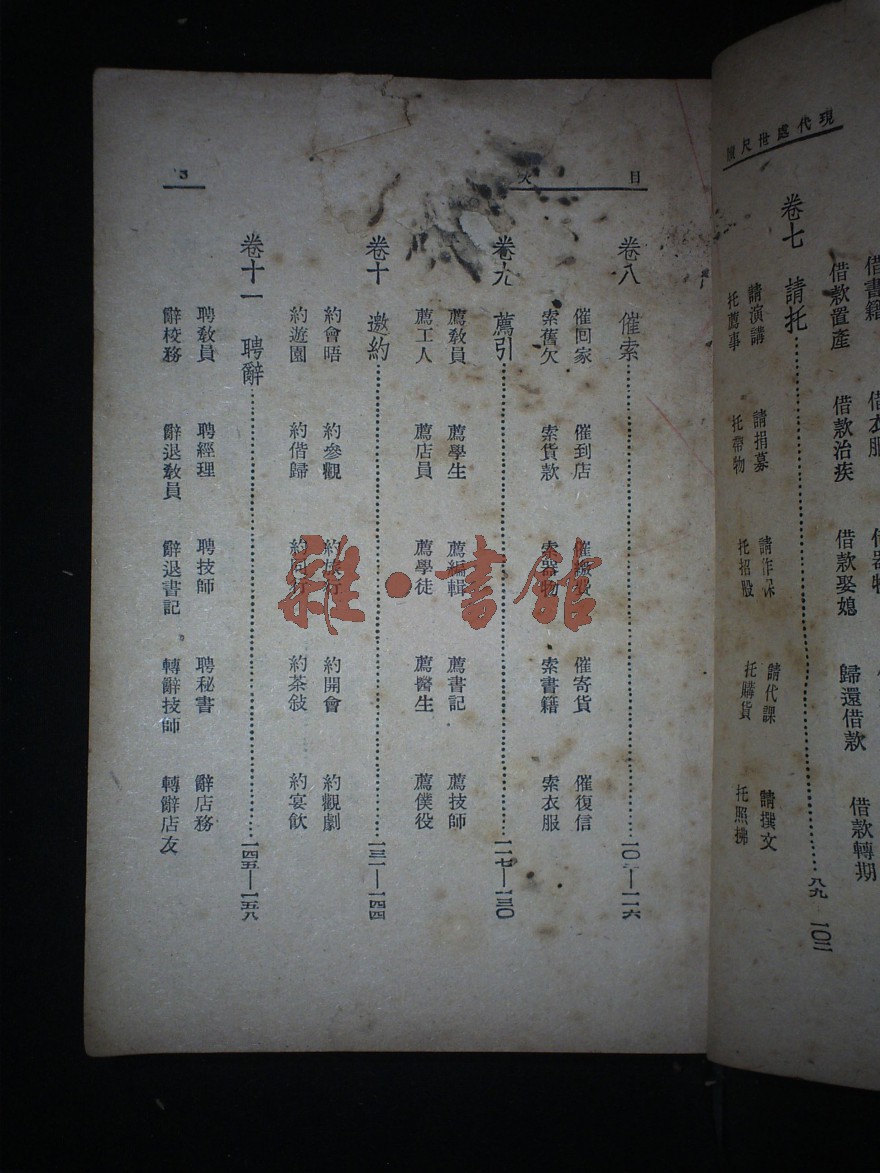 現代處世尺牘
借書籍
借衣服
借器物
借款置產 借款治疾 借款娶媳 歸還借款 借款轉期
卷七 請托……八九 一〇二
請演講 請捐募 請作保 請代課 請撰文
托薦事 托帶物 托招股 托購貨 托照拂
目 次
3
卷八 催索
催回家 催到店 催繳費 催寄貨 催復信
索舊欠 索貨款 索器物 索書籍 索衣服
卷九 薦引……一一七—一三〇
薦教員 薦學生 薦編輯 薦書記 薦技師
薦工人 薦店員 薦學徒 薦醫生 薦僕役
卷十 邀約……一三一—一四四
約會晤 約參觀 約旅行 約開會 約觀劇
約遊園 約偕歸 約同行 約茶敍 約宴飲
卷十一 聘辭……一四五—一五八
聘教員 聘經理 聘技師 聘秘書 辭店務
辭校務 辭退教員 辭退書記 轉辭技師 轉辭店友
雜·書館